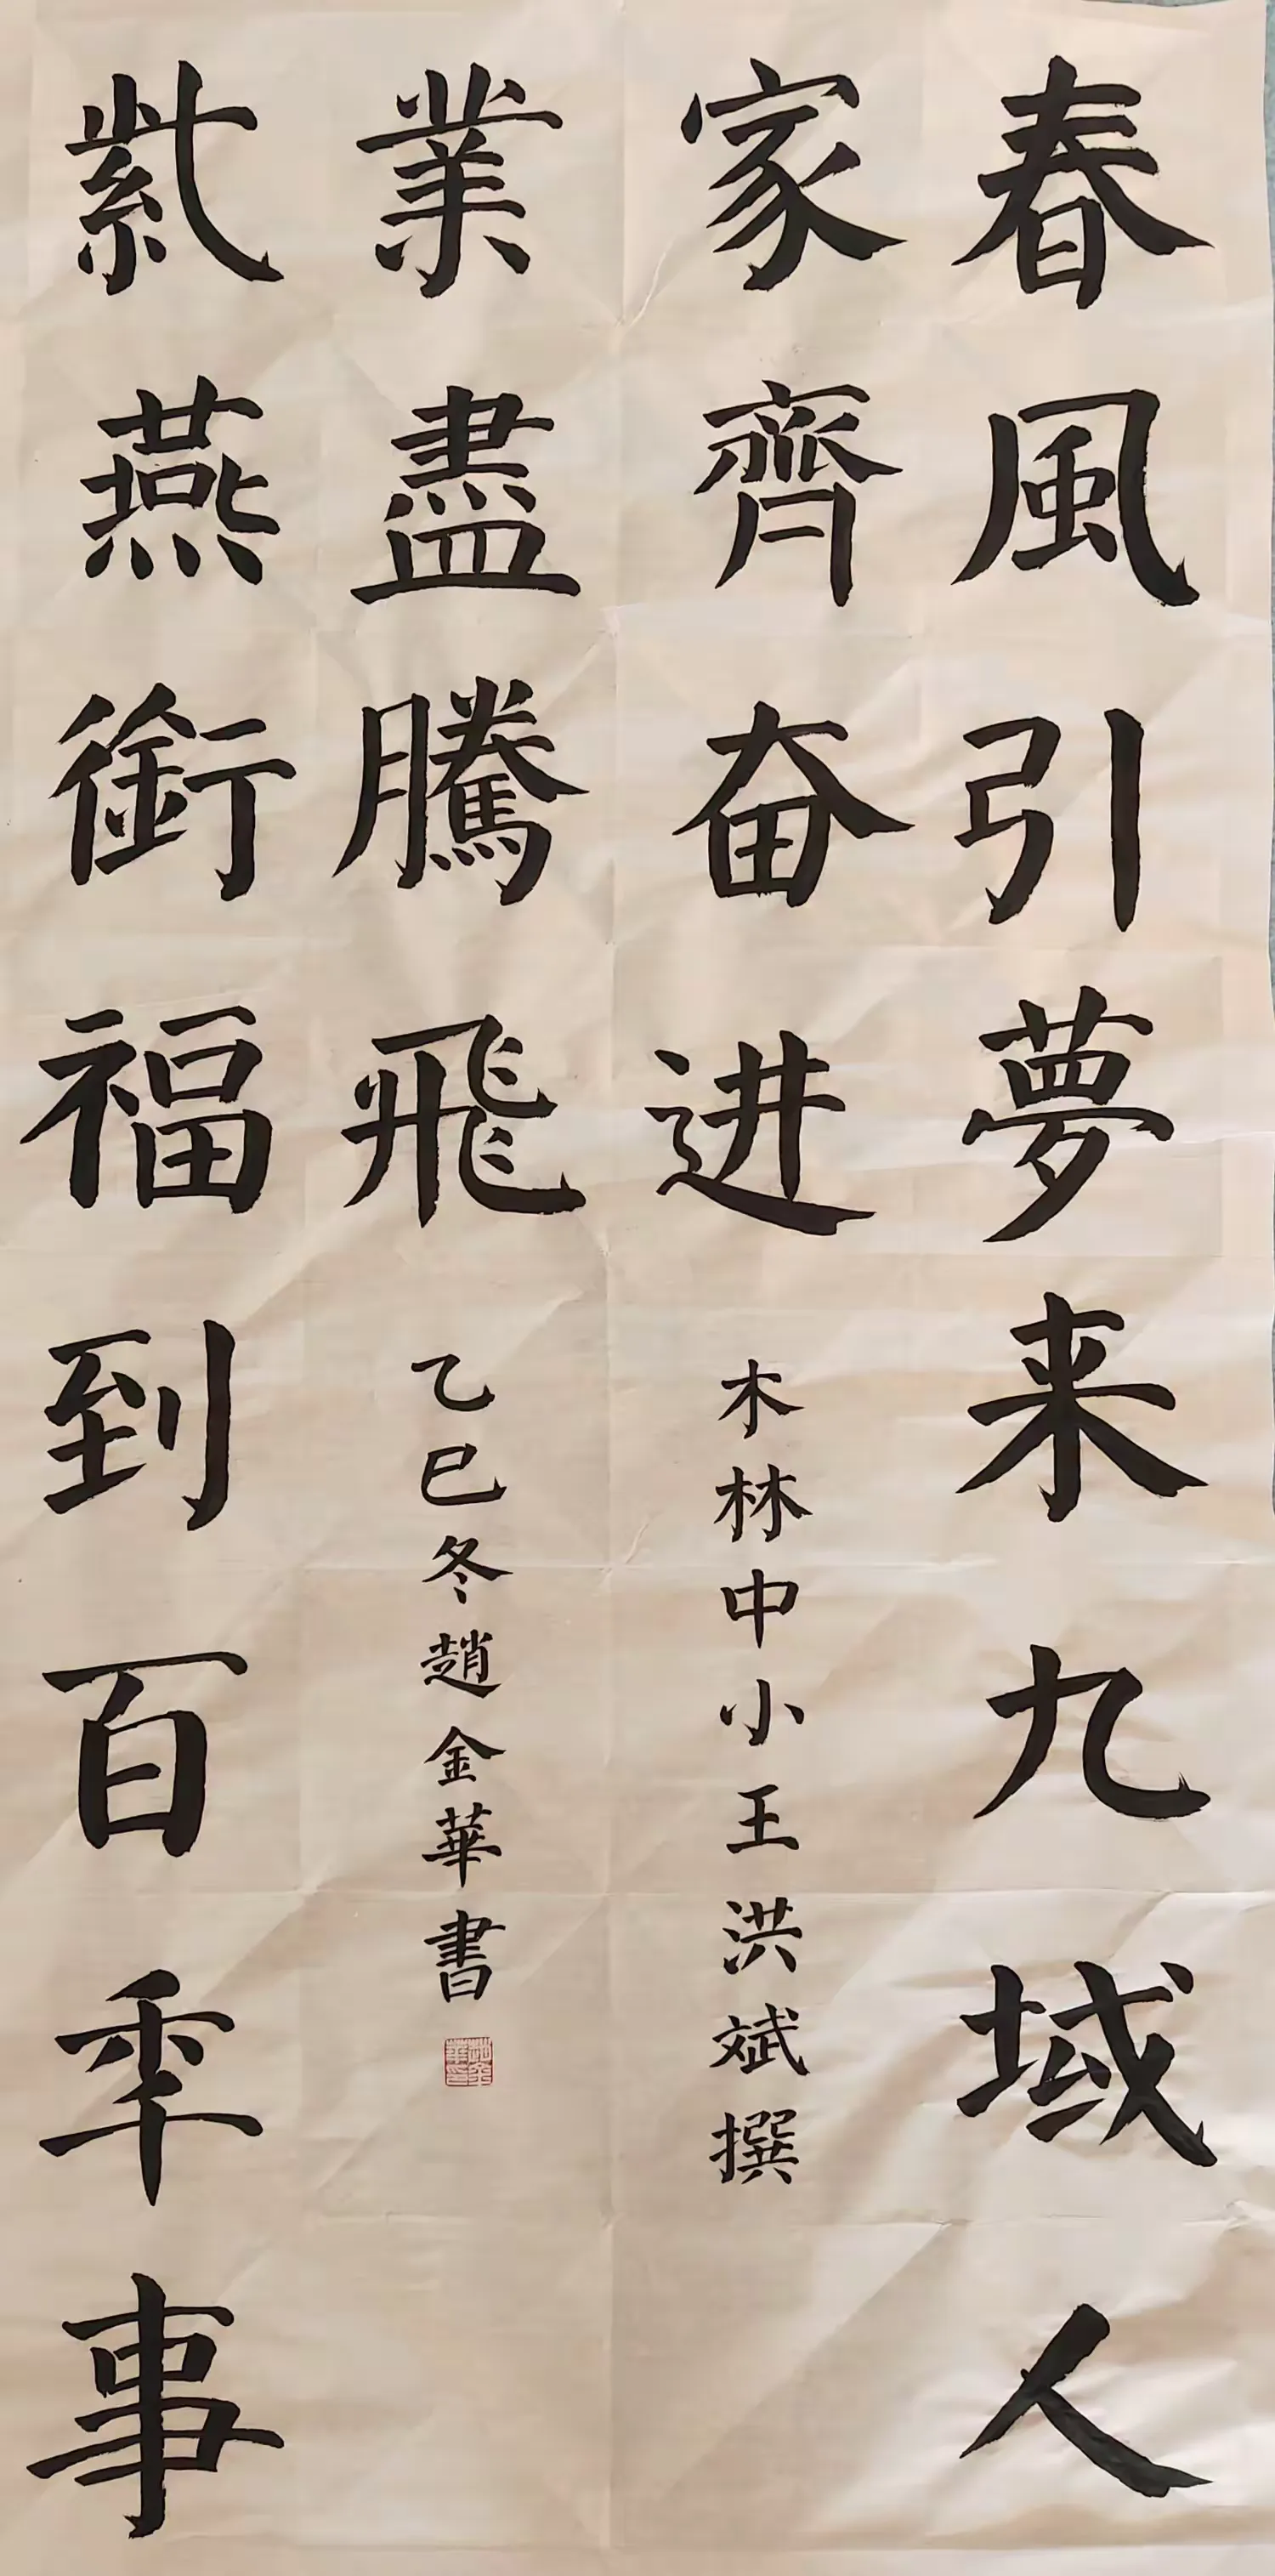 春風引夢来九域人
家齊奋进
木林中小王洪斌撰
紫燕銜福到百秊事
業盡騰飛
乙巳冬趙金華書